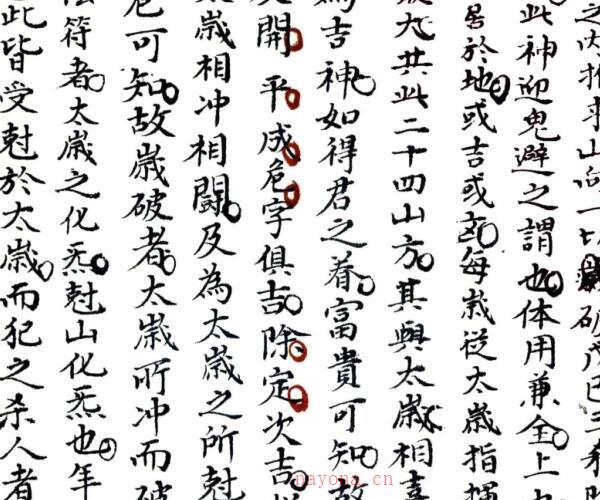 之内推求山向一切歲破戊己三
此神迎鬼避之謂也体用兼全上
於地或吉或凶每歲從太歲指揮
最大共此二十四山方其與太歲相喜
為吉神如得君之眷富貴可知故
開平成危字俱吉除定次吉
歲相冲相鬪及為太歲之所尅
危可知故歲破者太歲所冲而破
符者太歲之化炁尅山化炁也年
此皆受尅於太歲而犯之杀人者
nayona.cn